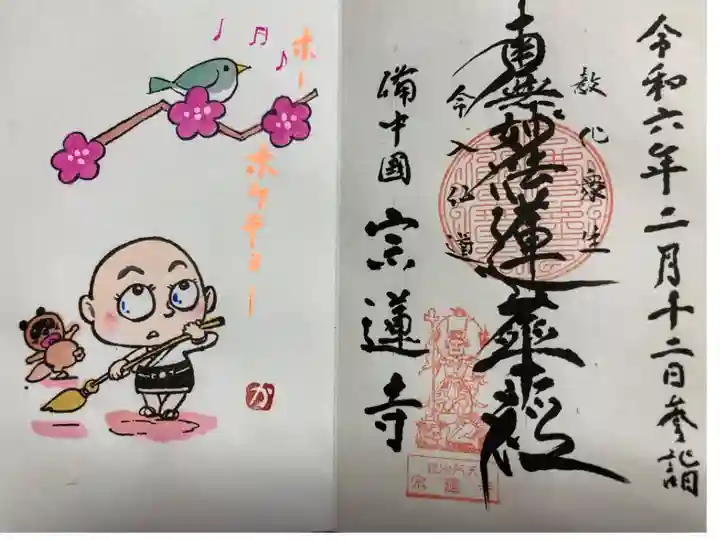 令和六年二月十二日参詣
教化衆生
南無妙法蓮華経
令入仏道
備中國 宗蓮寺
ホーホケキョー
か